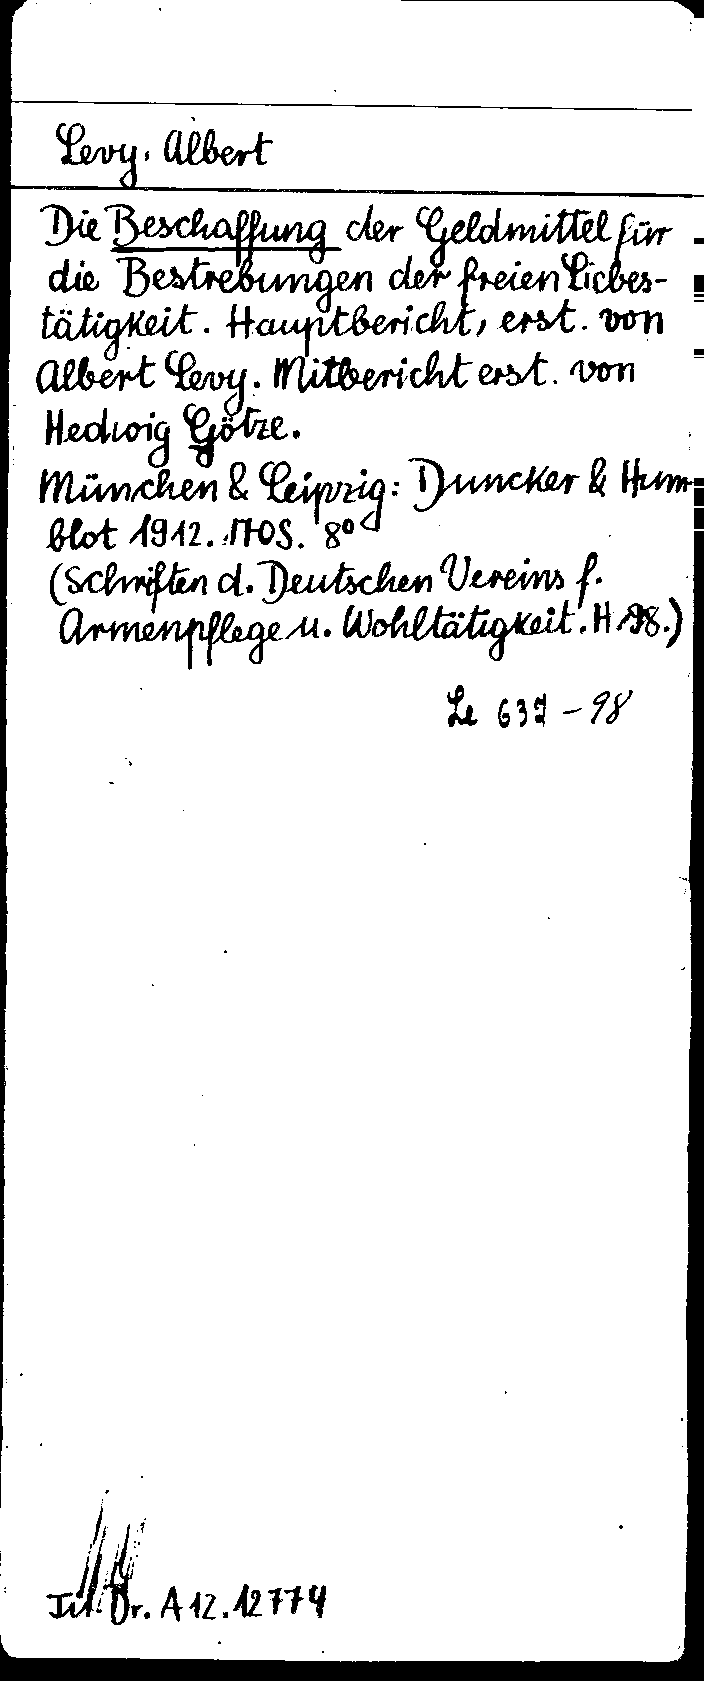 Levy, Albert
Die Beschaffung der Geldmittel für
die Bestrebungen der freien Liebes-
tätigkeit. Hauptbericht, erst. von
Albert Levy. Mitbericht erst. von
Hedwig Götze.
München & Leipzig: Duncker & Hum-
blot 1912. 170S. 8°
(Schriften d. Deutschen Vereins f.
Armenpflege u. Wohltätigkeit. H 98.)
Le 637 - 98
Dr. A 12.12774